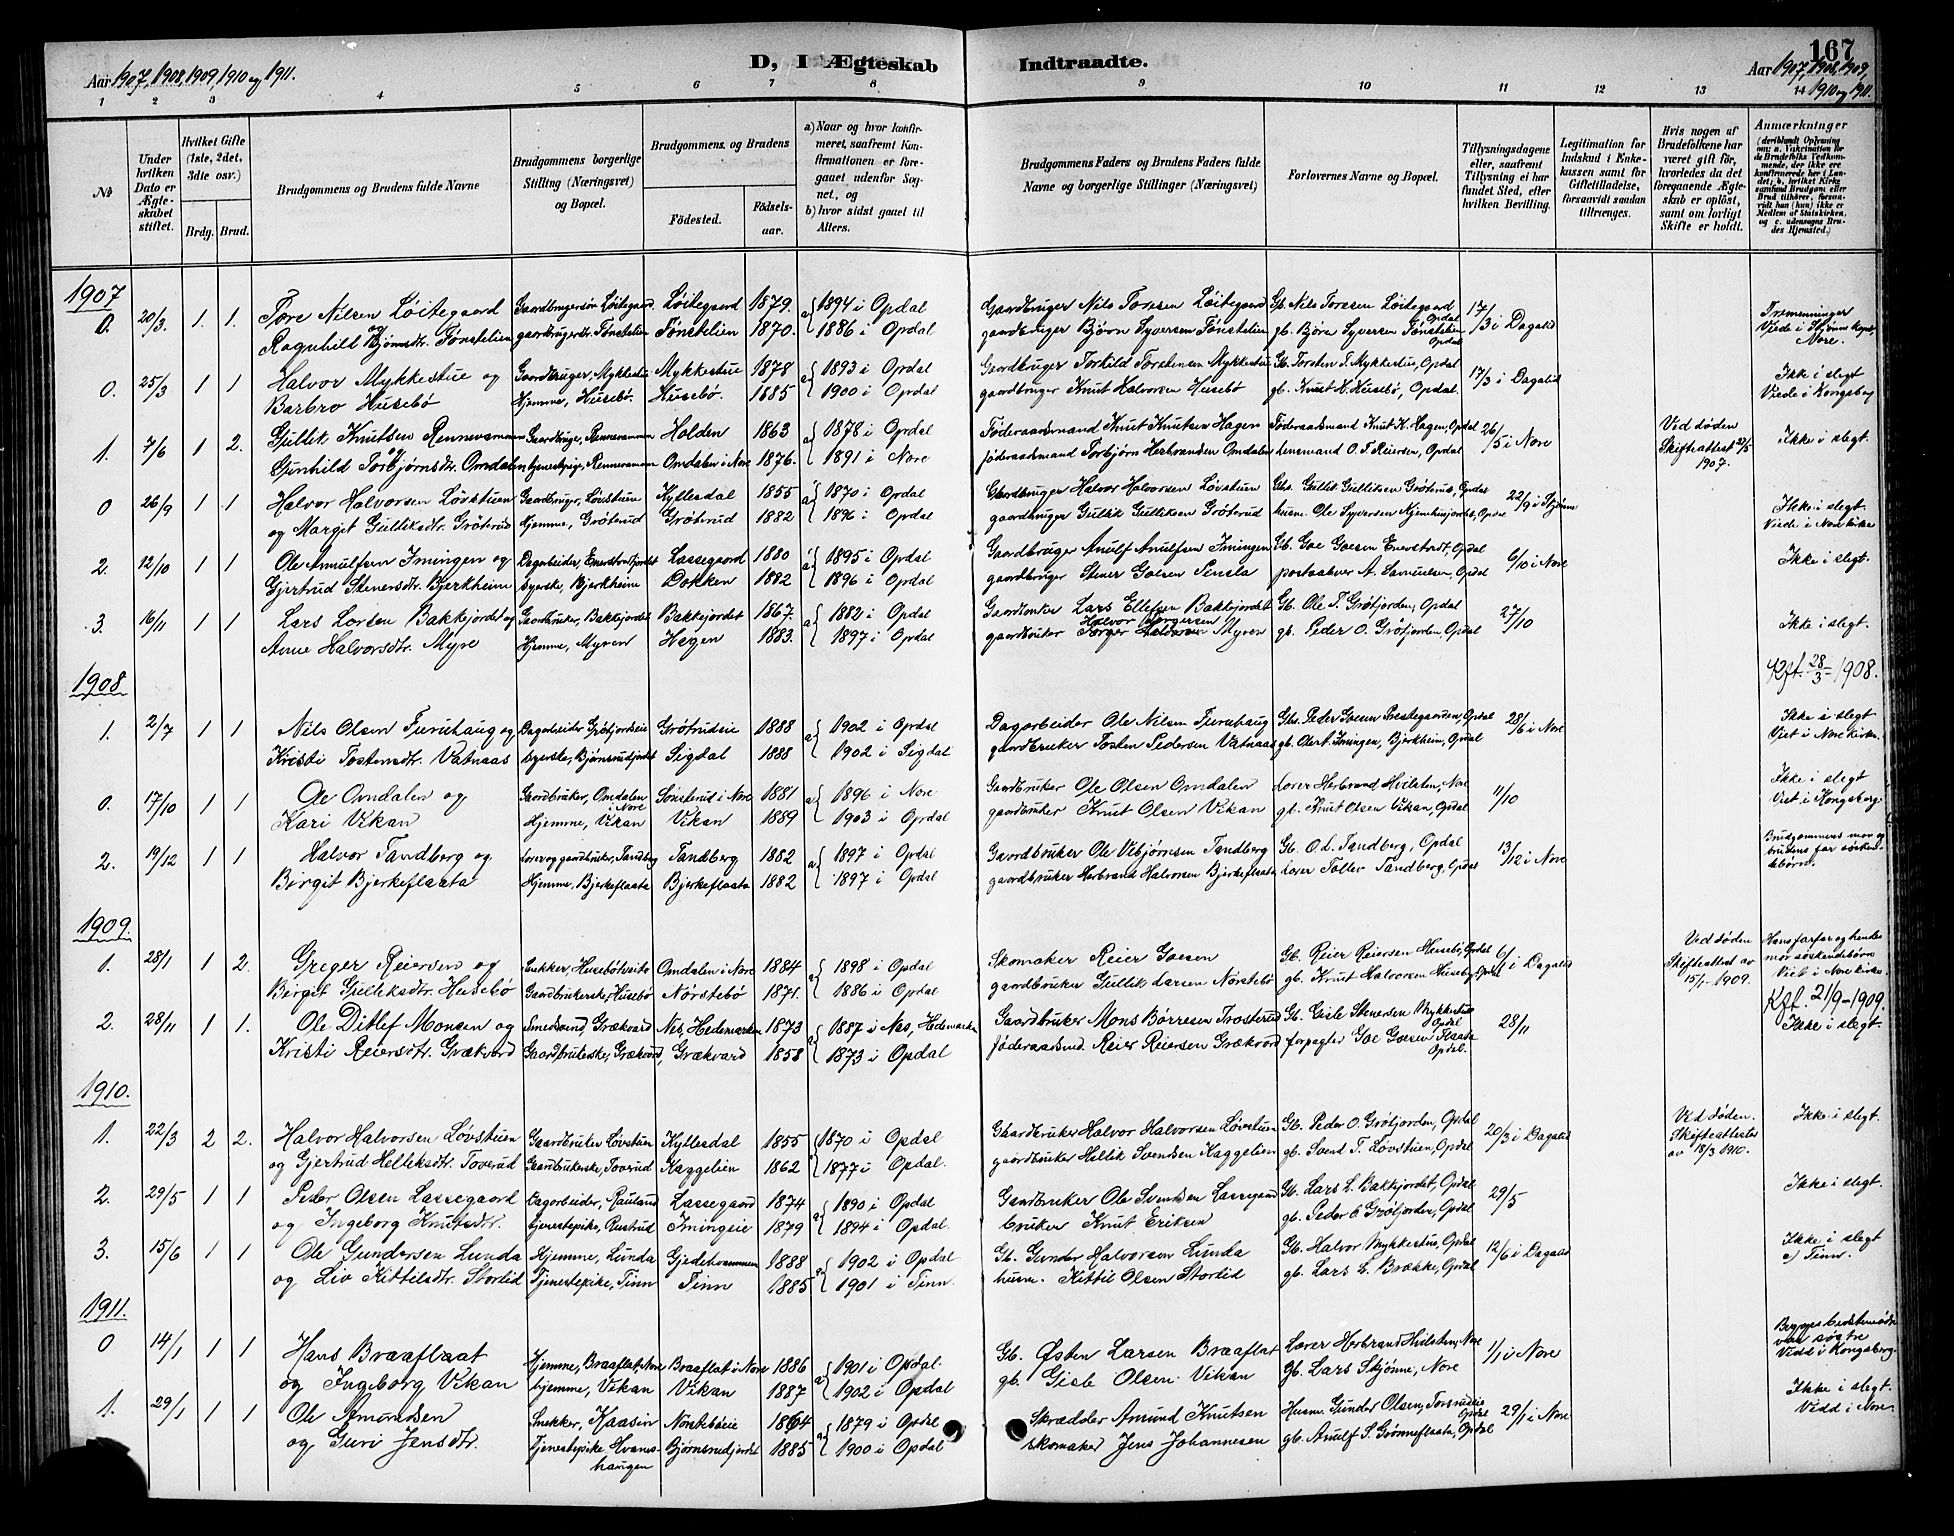 D, I Ægteskab Indtraadte. 167
Aar 1907, 1908, 1909, 1910 og 1911. Aar 1907, 1908, 1909, 1910 og 1911.
1 2 3 4 5 6 7 8 9 10 11 12 13 14
No
Under hvilken Dato er Ægteskabet stiftet.
Hvilket Gifte (1ste, 2det, 3die osv.) Brdg. Brud.
Brudgommens og Brudens fulde Navne
Brudgommens borgerlige Stilling (Næringsvei) og Bopæl.
Brudgommens og Brudens Fødested. Fødselsaar.
a) Naar og hvor konfirmeret, saafremt Konfirmationen er foregaaet udenfor Sognet, og b) hvor sidst gaaet til Alters.
Brudgommens Faders og Brudens Faders fulde Navne og borgerlige Stillinger (Næringsvei)
Forlovernes Navne og Bopæl.
Tillysningsdagene eller, saafremt Tillysning ei har fundet Sted, efter hvilken Bevilling.
Legitimation for Indskud i Enkekassen samt for Giftetilladelse, forsaavidt saadan tiltrænges.
Hvis nogen af Brudefolkene har været gift før, hvorledes da det foregaaende Ægteskab er opløst, samt om lovligt Skifte er holdt.
Anmærkninger
1907
0. 20/3. 1. 1. Tore Nilsen Løitegaard og Gaardbrugersøn Løitegaard Løitegaard 1879. a) 1894 i Opdal Gaardbruger Nils Toresen Løitegaard Gb. Nils Toresen Løitegaard Opdal 17/3 i Dagalid Tremenninger
Ragnhild Bjørnsdtr. Fønstelien gaardbrugerdt. Fønstelien Fønstelien 1870. 1886 i Opdal gaardbruger Bjørn Syversen Fønstelien gb. Bjørn Syversen Fønstelien Opdal Viede i Skjønne Kapel, Nore.
0. 25/3 1 1 Halvor Mykkestue og Gaardbruger, Mykkestue Mykkestue 1878 a) 1893 i Opdal Gaardbruger Torkild Torstensen Mykkestue Gb. Torsten T. Mykkestue, Opdal 17/3 i Dagalid Ikke i slegt
Barbro Husebø Hjemme, Husebø. Husebø. 1885 1900 i Opdal gaardbruger Knut Halvorsen Husebø gb. Knut H. Husebø, Opdal. Viede i Kongsberg
1. 7/6 1 2. Gullik Knutsen Rennevammen og Gaardbruger, Rennevammen Holden 1863 a) 1878 i Opdal Føderaadsmand Knut Knutsen Hagen Føderaadsmand Knut K. Hagen, Opdal 26/5 i Nore Ved døden Ikke i slegt.
Gunhild Torbjørnsdtr. Omdalen tjenestepige, Rennevammen Omdalen i Nore 1876. 1891 i Nore føderaadsmand Torbjørn Herbrandsen Omdalen lensmand O. T. Reiersen, Opdal Skifteattest 29/5 1907.
0 26/9 1 1 Halvor Halvorsen Løvstuen Gaardbruger, Løvstuen Kyllesdal 1855 a) 1870 i Opdal Gaardbruger Halvor Halvorsen Løvstuen Gbs. Gullik Gulliksen Grøterud, Opdal 22/9 i Skjønne Ikke i slegt.
og Margit Gulliksdtr. Grøterud Hjemme, Grøterud Grøterud 1882 1896 i Opdal gaardbruger Gullik Gulliksen Grøterud husm. Ole Syversen Opdal Viede i Nore kirke
2. 12/10 1 1 Ole Arnulfsen Imingen og Dagarbeider, Lassegaard 1880 a) 1895 i Opdal Gaardbruger Arnulf Arnulfsen Imingen Gb. Goe Goesen Enerstvedt, Opdal 6/10 i Nore Ikke i slegt.
Gjertrud Stenersdtr. Bjerkheim syerske, Bjerkheim Dokken 1882 1896 i Opdal gaardbruger Stener Goesen postaabner A. Samuelsen, Opdal
3. 16/11 1 1 Lars Larsen Bakkejordet og Gaardbruker, Bakkejordet Bakkejordet 1867. a) 1882 i Opdal Gaardbruker Lars Ellefsen Bakkejordet Gb. Ole T. Grøfjorden, Opdal 27/10 Ikke i slegt.
Anne Halvorsdtr. Myre Hjemme, Myren Hegen 1883. 1897 i Opdal gaardbruker Halvor Torgersen Myren gb. Peder O. Grøfjorden, Opdal
1908. Kzf. 28/3 - 1908.
1. 2/7 1 1 Nils Olsen Furuhaug og Dagarbeider Grøfjordseie Grøtrudeie 1888 a) 1902 i Opdal Dagarbeider Ole Nilsen Furuhaug Gbs. Peder Goesen Prestegaarden, Opdal 28/6 i Nore Ikke i slegt
Kristi Tostensdtr. Vatnaas syerske, Bjørnsrudjordet Sigdal 1888 1902 i Sigdal gaardbruker Tosten Pedersen Vatnaas gb. Ole A. Imingen, Bjerkheim, Opdal Viet i Nore kirke.
0. 17/10 1 1 Ole Omdalen og Gaardbruker, Omdalen i Nore Sønsterud i Nore 1881 a) 1896 i Nore Gaardbruker Ole Olsen Omdalen Lærer Herbrand Hvilsten, Nore 11/10 Ikke i slegt
Kari Vikan Hjemme, Vikan Vikan 1889 1903 i Opdal gaardbruker Knut Olsen Vikan gb. Knut Olsen Vikan, Opdal Viet i Kongsberg.
2. 19/12 1 1 Halvor Tandberg og Lærer og gaardbruker, Tandberg Tandberg 1882 a) 1897 i Opdal Gaardbruker Ole Vebjørnsen Tandberg Gb. O. L. Tandberg, Opdal 13/12 i Nore Brudgommens mor og
Birgit Bjerkeflaata Hjemme, Bjerkeflaata Bjerkeflaata 1882 1897 i Opdal gaardbruker Herbrand Halvorsen Bjerkeflaata lærer Tollev Tandberg, Opdal brudens far søskenebørn.
1909.
1. 28/1 1 2. Greger Reiersen og Snekker, Omdalen i Nore 1884 a) 1898 i Opdal Skomaker Reier Goesen Gb. Reier Reiersen Husebø, Opdal 6/1 i Dagalid Ved døden Hans farfar og hendes
Birgit Gulliksdtr. Husebø Gaardbrukerske, Husebø Nørstebø 1871. 1886 i Opdal gaardbruker Gullik Larsen Nørstebø gb. Knut Halvorsen Husebø, Opdal Skifteattest av 15/1 - 1909. mor søskendebørn Viet i Nore kirke
Kzf. 21/9 - 1909.
2. 28/11 1 1. Ole Ditlef Monsen og Smedsvend, Grækvard Nes, Hedemarken 1873 a) 1887 i Nes, Hedemarken Gaardbruker Mons Børresen Trosterud Gb. Gisle Stenersen Mykkestue Opdal 28/11 Ikke i slegt.
Kristi Reiersdtr. Grækvard Gaardbrukerske, Grækvard, Grækvard 1858 1873 i Opdal føderaadsmd. Reier Reiersen Grækvard forpagter Goe Goesen Flaata Opdal.
1910.
1. 22/3 2 2. Halvor Halvorsen Løvstuen Gaardbruker Løvstuen Kyllesdal 1855 1870 i Opdal Gaardbruker Halvor Halvorsen Løvstuen Gb. Peder O. Grøfjorden, Opdal 20/3 i Dagalid Ved døden. Ikke i slegt.
og Gjertrud Helleksdtr. Toverud Gaardbrukerske, Toverud Kaggelien 1862 1877 i Opdal. gaardbruker Hellik Svendsen Kaggelien gb. Svend T. Løvstuen, Opdal Skifteattester av 18/3 1910.
2. 29/5 1 1 Peder Olsen Lassegaard Dagarbeider, Rauland Lassegaard 1874 a) 1890 i Opdal Gaardbruker Ole Svendsen Lassegaard Gb. Lars L. Bakkejordet, Opdal 29/5 Ikke i slegt.
og Ingeborg Knutsdtr. tjenestepike, Rustrud Imingeie 1879 1894 i Opdal. bruker Knut Eriksen gb. Peder O. Grøfjorden, Opdal
3. 15/6 1 1 Ole Gundersen Lunda Hjemme, Lunda Gjedehvammen 1888 a) 1902 i Opdal Gb. Gunder Halvorsen Lunda Gb. Halvor Mykkestue, Opdal 12/6 i Dagalid Ikke i slegt
og Liv Kittilsdtr. Stortid Tjenestepike, Tinn Tinn 1885 1901 i Tinn. husm. Kittil Olsen Stortid gb. Lars L. Brække, Opdal c) Tinn.
1911.
0 14/1 1 1 Hans Braaflaat Hjemme, Braaflat, Nore Braaflat i Nore 1886 a) 1901 i Opdal. Gb. Østen Larsen Braaflat Lærer Herbrand Hvilsten, Nore 1/1 i Nore Begges bedstemødre var søstre
og Ingeborg Vikan hjemme, Vikan Vikan 1887 1902 i Opdal gb. Gisle Olsen Vikan gb. Lars Skjønne, Nore Viede i Kongsberg.
1. 29/1 1 1 Ole Amundsen Snekker, Kaasin Nørstebøeie 1864 a) 1879 i Opdal Skrædder Amund Knutsen Husm. Gunder Olsen, Opdal 29/1 i Nore Ikke i slegt.
og Guri Jensdtr. Tjenestepike Hvamshaugen Bjørnsrudjordet 1885 1900 i Opdal skomaker Jens Johannesen gb. Arnulf S. Grønneflaata, Opdal Vedd i Nore